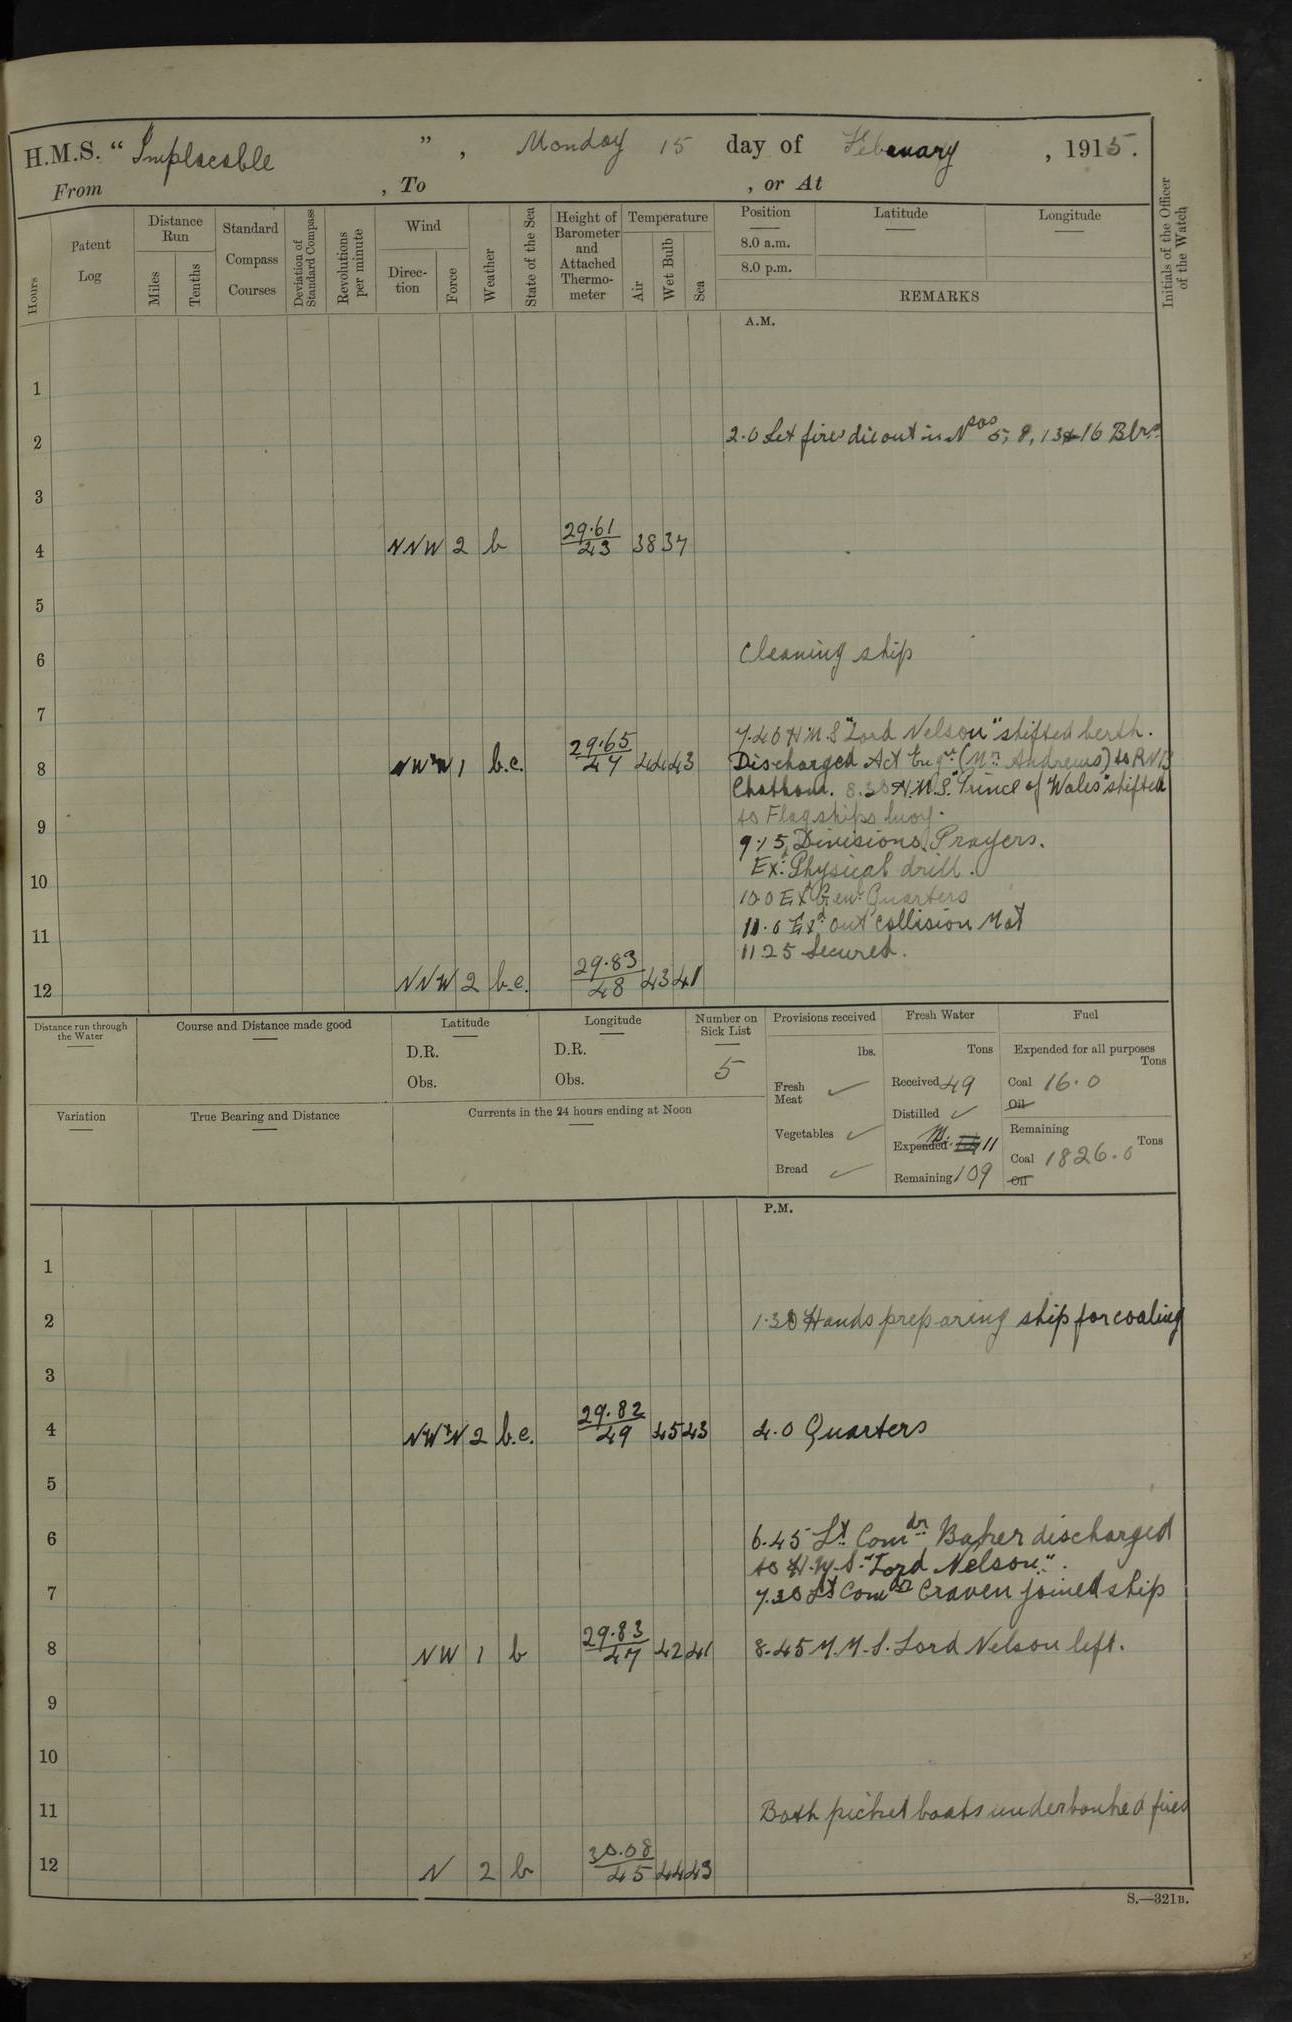 H.M.S. “ Implacable ” , Monday 15 day of February , 1915.
From , To , or At
Hours
Patent Log
Distance Run
Miles
Tenths
Standard Compass Courses
Deviation of Standard Compass
Revolutions per minute
Wind
Direc-tion
Force
Weather
State of the Sea
Height of Barometer and Attached Thermo-meter
Temperature
Air
Wet Bulb
Sea
Position
8.0 a.m.
8.0 p.m.
Latitude
Longitude
REMARKS
Initials of the Officer of the Watch
A.M.
1
2 2.0 Let fires die out in Nos 5, 8, 13 & 16 Blrs
3
4 NNW 2 b 29.61/43 38 37
5
6 Cleaning ship
7 7.40 H.M.S "Lord Nelson" shifted berth.
8 NWxN 1 b.c. 29.65/47 44 43 Discharged Act Engr (Mr Andrews) to RNB
Chatham. 8.30 H.M.S. "Prince of Wales" shifted
to Flagships buoy.
9 9.15 Divisions. Prayers.
Exd Physical drill.
10 10.0 Exd Genl Quarters
11 11.0 Exd out collision Mat
11 25 Secured.
12 NNW 2 b.c. 29.83/48 43 41
Distance run through the Water
Course and Distance made good
Latitude
D.R.
Obs.
Longitude
D.R.
Obs.
Number on Sick List
5
Provisions received
lbs.
Fresh Meat ✓
Vegetables ✓
Bread ✓
Fresh Water
Tons
Received 49
Distilled ✓
Expended 11
Remaining 109
Fuel
Expended for all purposes
Tons
Coal 16.0
Oil
Remaining
Coal 1826.0 Tons
Oil
Variation
True Bearing and Distance
Currents in the 24 hours ending at Noon
P.M.
1
2 1.30 Hands preparing ship for coaling
3
4 NWxN 2 b.c. 29.82/49 45 43 4.0 Quarters
5
6 6.45 Lt Comdr Baker discharged
to H.M.S. "Lord Nelson".
7 7.30 Lt Comdr Craven joined ship
8 NW 1 b 29.83/47 42 41 8.45 H.M.S. Lord Nelson left.
9
10
11 Both picket boats under banked fires
12 N 2 b 30.08/45 44 43
S.—321B.